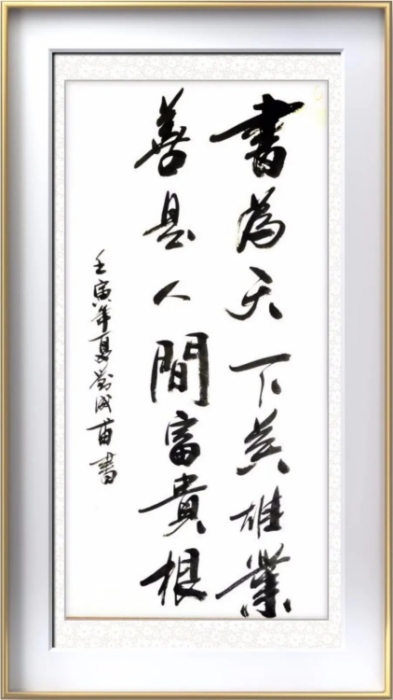 書為天下英雄業
善是人間富貴根
壬寅年夏成苗書